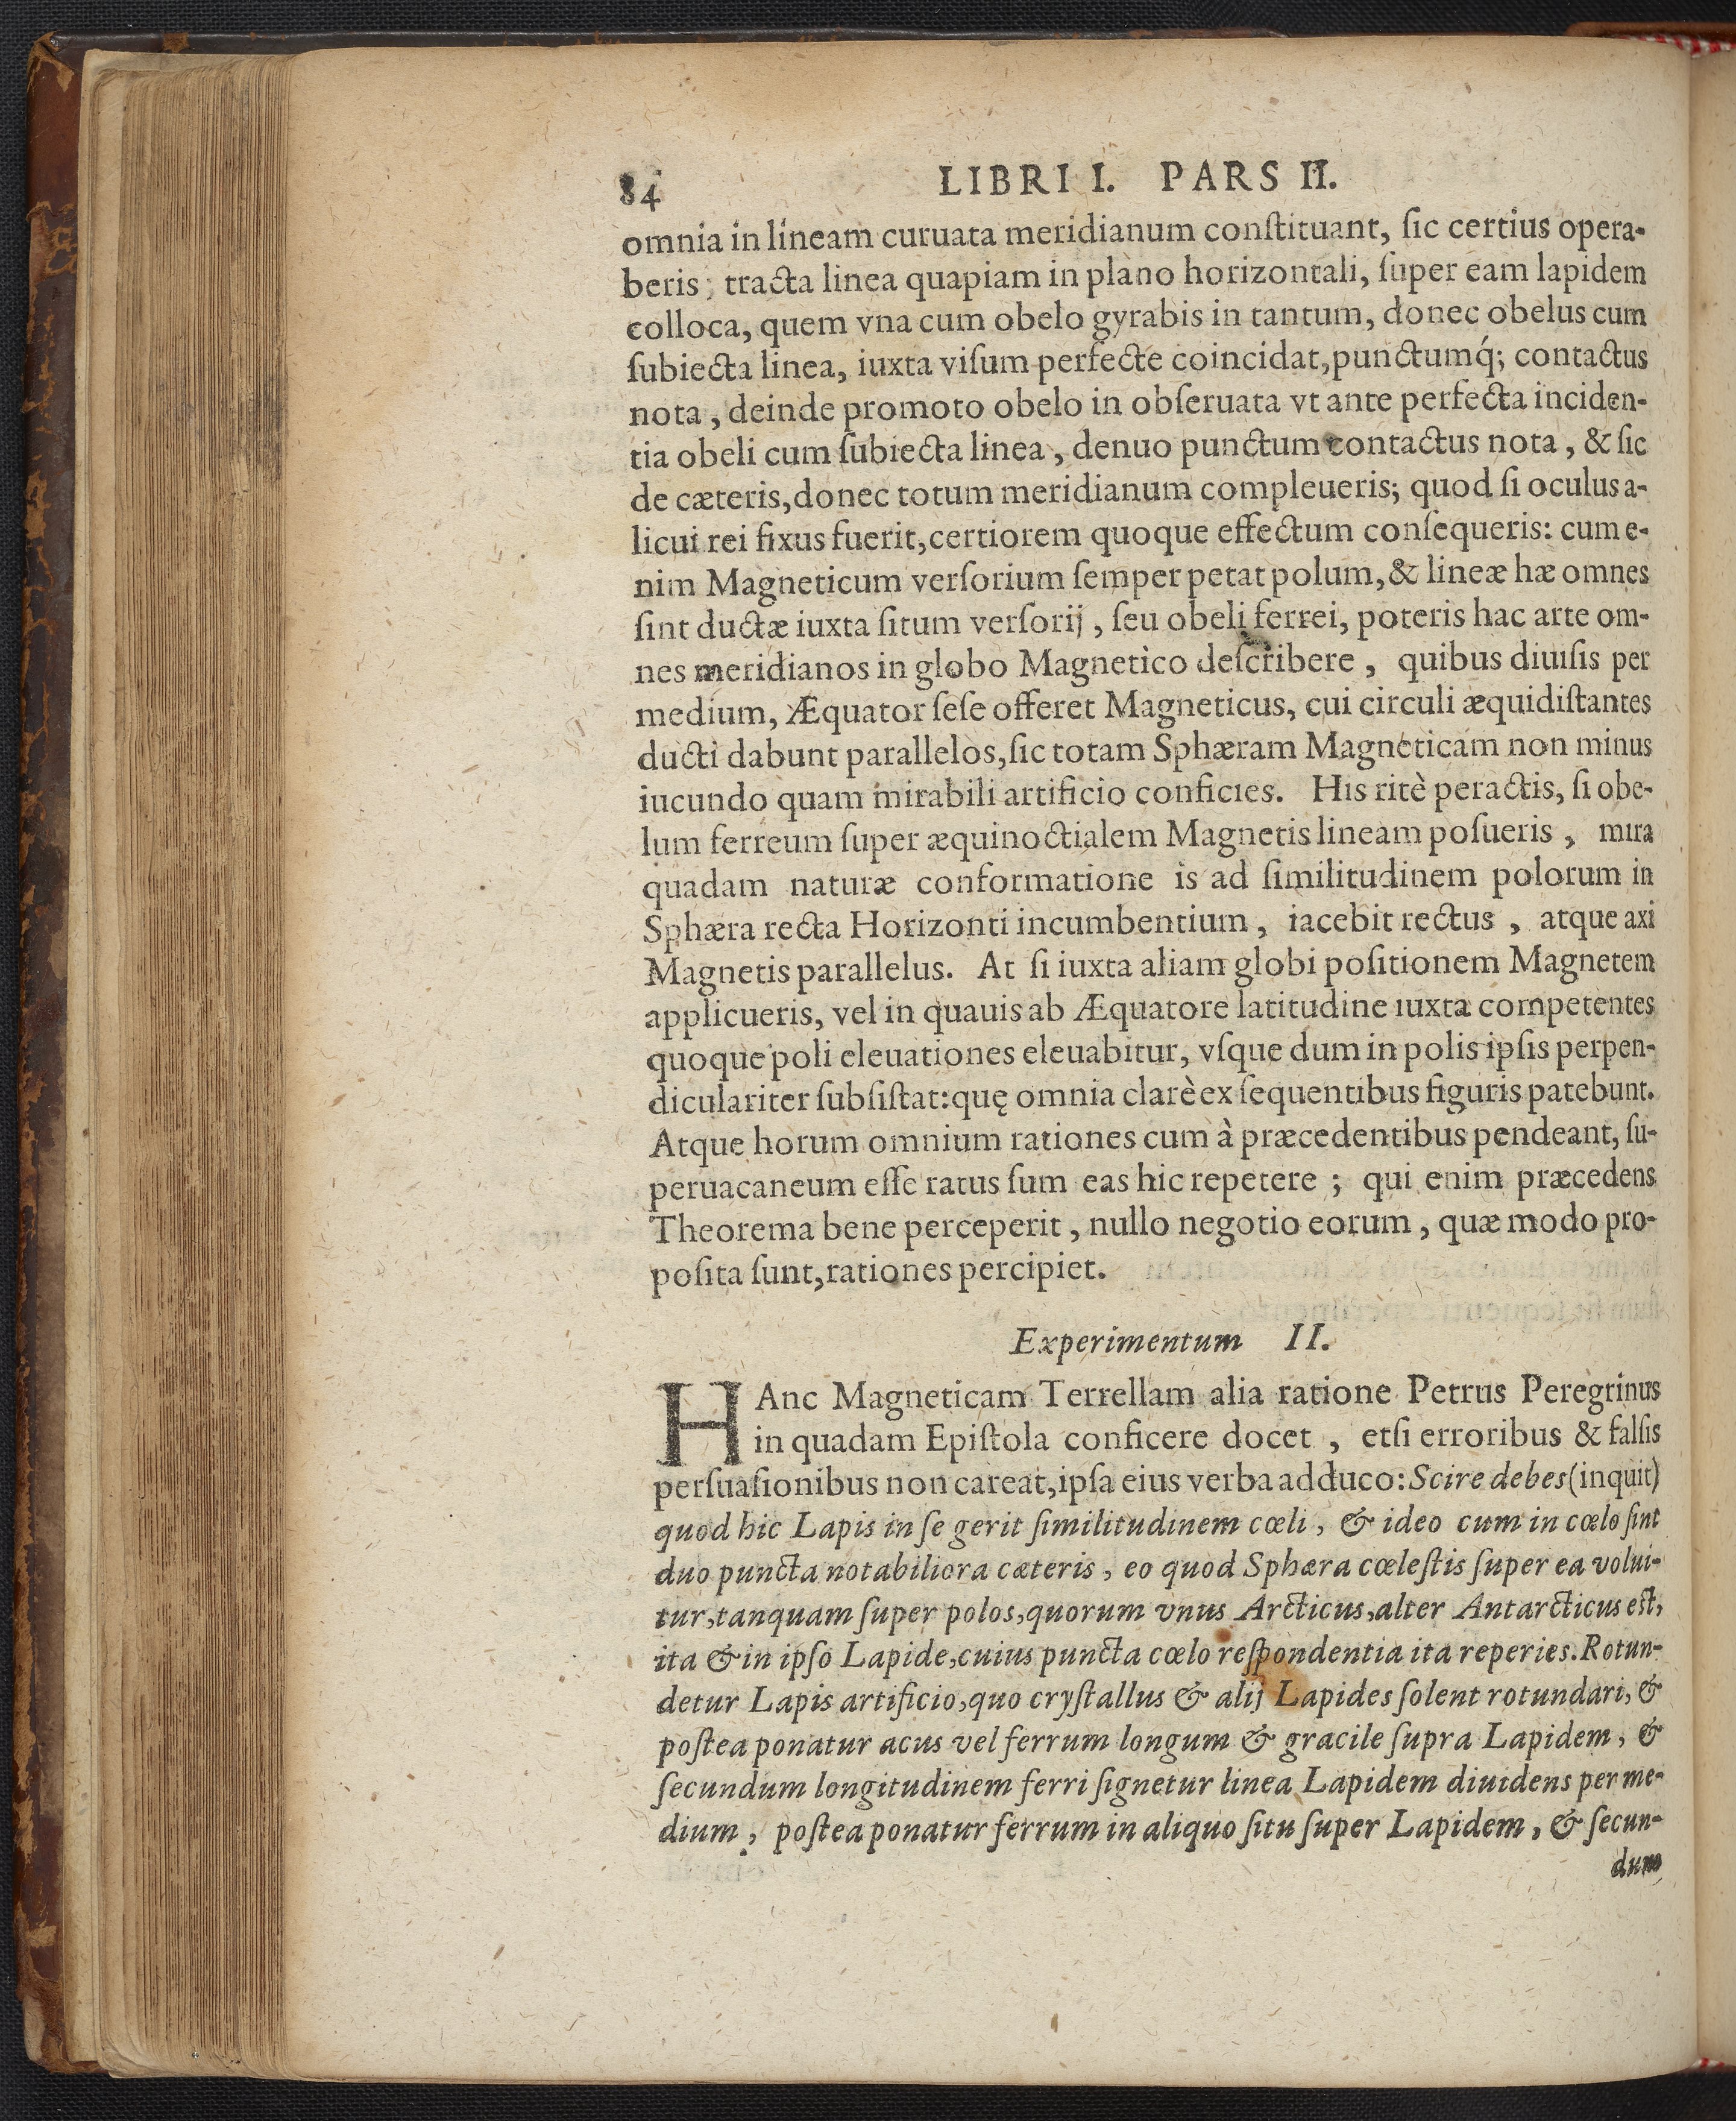 84 LIBRI I. PARS II.
omnia in lineam curuata meridianum conſtituant, ſic certius opera-
beris; tracta linea quapiam in plano horizontali, ſuper eam lapidem
colloca, quem vna cum obelo gyrabis in tantum, donec obelus cum
ſubiecta linea, iuxta viſum perfecte coincidat, punctumq́; contactus
nota, deinde promoto obelo in obſeruata vt ante perfecta inciden-
tia obeli cum ſubiecta linea, denuo punctum contactus nota, & ſic
de cæteris, donec totum meridianum compleueris; quod ſi oculus a-
licui rei fixus fuerit, certiorem quoque effectum conſequeris: cum e-
nim Magneticum verſorium ſemper petat polum, & lineæ hæ omnes
ſint ductæ iuxta ſitum verſorij, ſeu obeli ferrei, poteris hac arte om-
nes meridianos in globo Magnetico deſcribere, quibus diuiſis per
medium, Æquator ſeſe offeret Magneticus, cui circuli æquidiſtantes
ducti dabunt parallelos, ſic totam Sphæram Magneticam non minus
iucundo quam mirabili artificio conficies. His ritè peractis, ſi obe-
lum ferreum ſuper æquinoctialem Magnetis lineam poſueris, mira
quadam naturæ conformatione is ad ſimilitudinem polorum in
Sphæra recta Horizonti incumbentium, iacebit rectus, atque axi
Magnetis parallelus. At ſi iuxta aliam globi poſitionem Magnetem
applicueris, vel in quauis ab Æquatore latitudine iuxta competentes
quoque poli eleuationes eleuabitur, vſque dum in polis ipſis perpen-
diculariter ſubſiſtat: quę omnia clarè ex ſequentibus figuris patebunt.
Atque horum omnium rationes cum à præcedentibus pendeant, ſu-
peruacaneum eſſe ratus ſum eas hic repetere; qui enim præcedens
Theorema bene perceperit, nullo negotio eorum, quæ modo pro-
poſita ſunt, rationes percipiet.
Experimentum II.
HAnc Magneticam Terrellam alia ratione Petrus Peregrinus
in quadam Epiſtola conficere docet, etſi erroribus & falſis
perſuaſionibus non careat, ipſa eius verba adduco: Scire debes (inquit)
quod hic Lapis in ſe gerit ſimilitudinem cœli, & ideo cum in cœlo ſint
duo puncta notabiliora cæteris, eo quod Sphæra cœleſtis ſuper ea volui-
tur, tanquam ſuper polos, quorum vnus Arcticus, alter Antarcticus eſt,
ita & in ipſo Lapide, cuius puncta cœlo reſpondentia ita reperies. Rotun-
detur Lapis artificio, quo cryſtallus & alij Lapides ſolent rotundari, &
poſtea ponatur acus vel ferrum longum & gracile ſupra Lapidem, &
ſecundum longitudinem ferri ſignetur linea Lapidem diuidens per me-
dium, poſtea ponatur ferrum in aliquo ſitu ſuper Lapidem, & ſecun-
dum